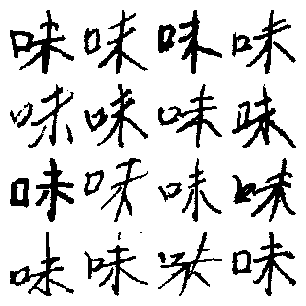 味味味味
味味味味
味味味味
味味味味